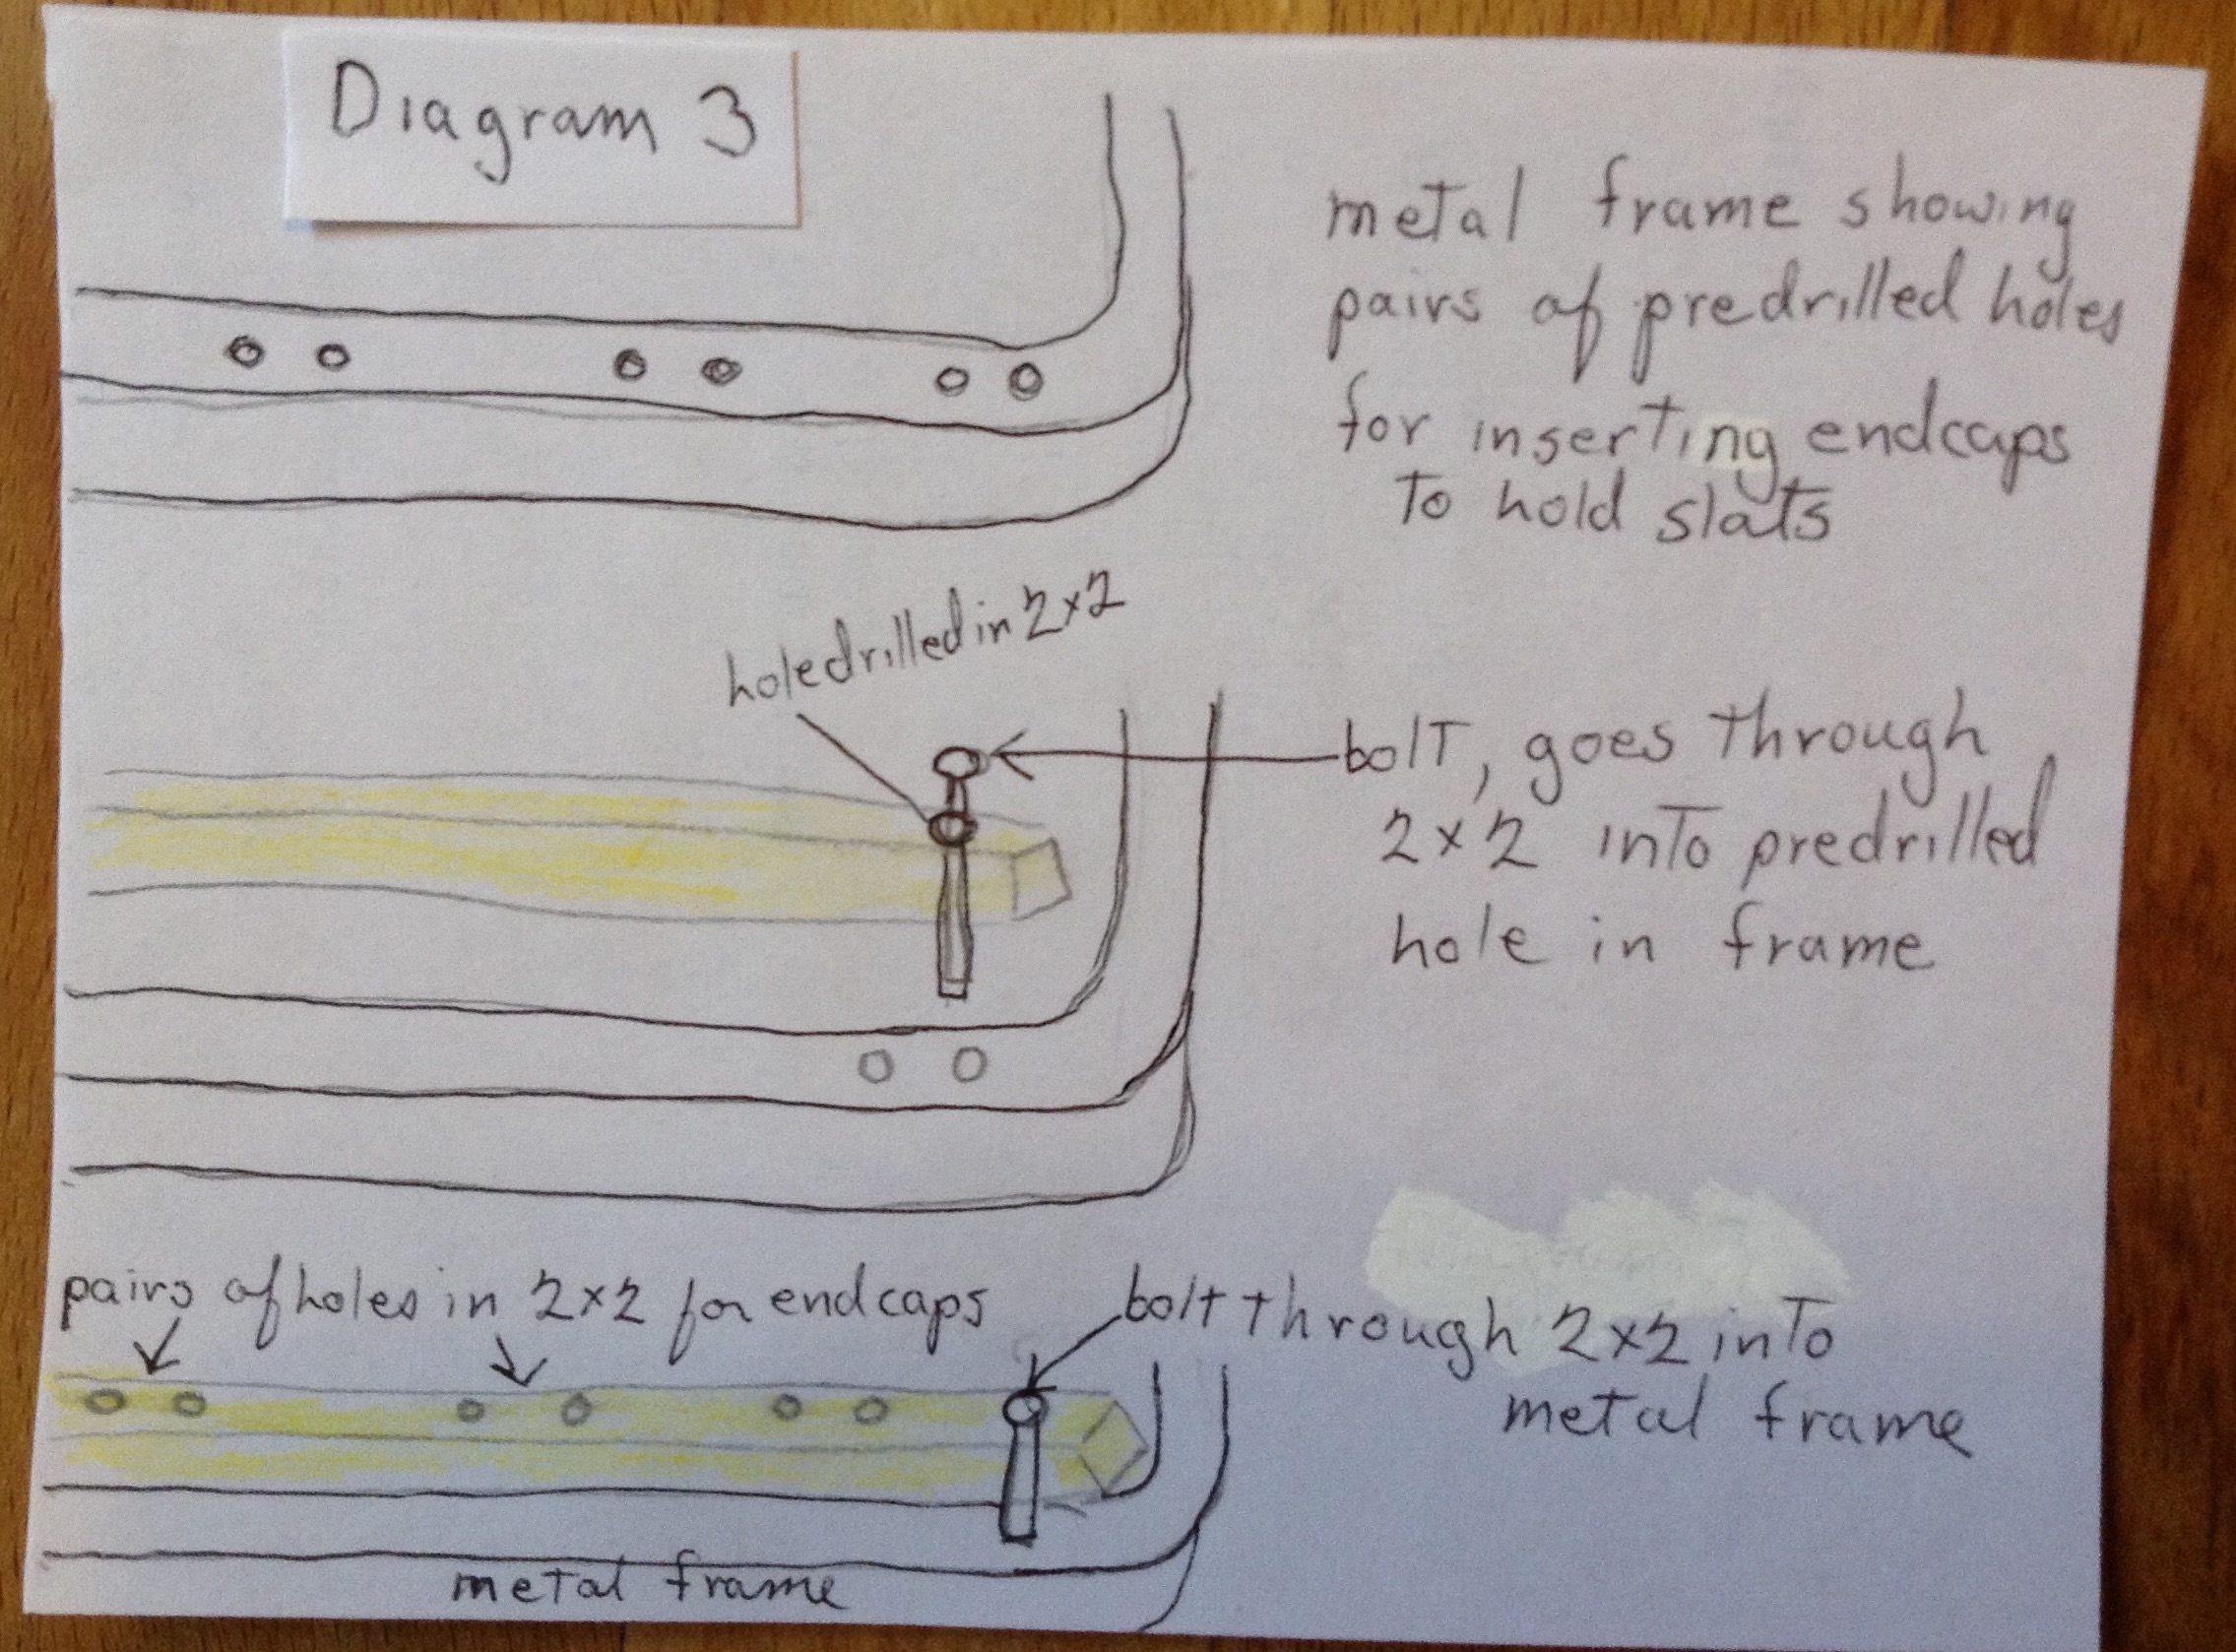 Diagram 3
metal frame showing
pairs of predrilled holes
for inserting endcaps
to hold slats
hole drilled in 2x2
bolt, goes through
2x2 into predrilled
hole in frame
pairs of holes in 2x2 for endcaps
bolt through 2x2 into
metal frame
metal frame